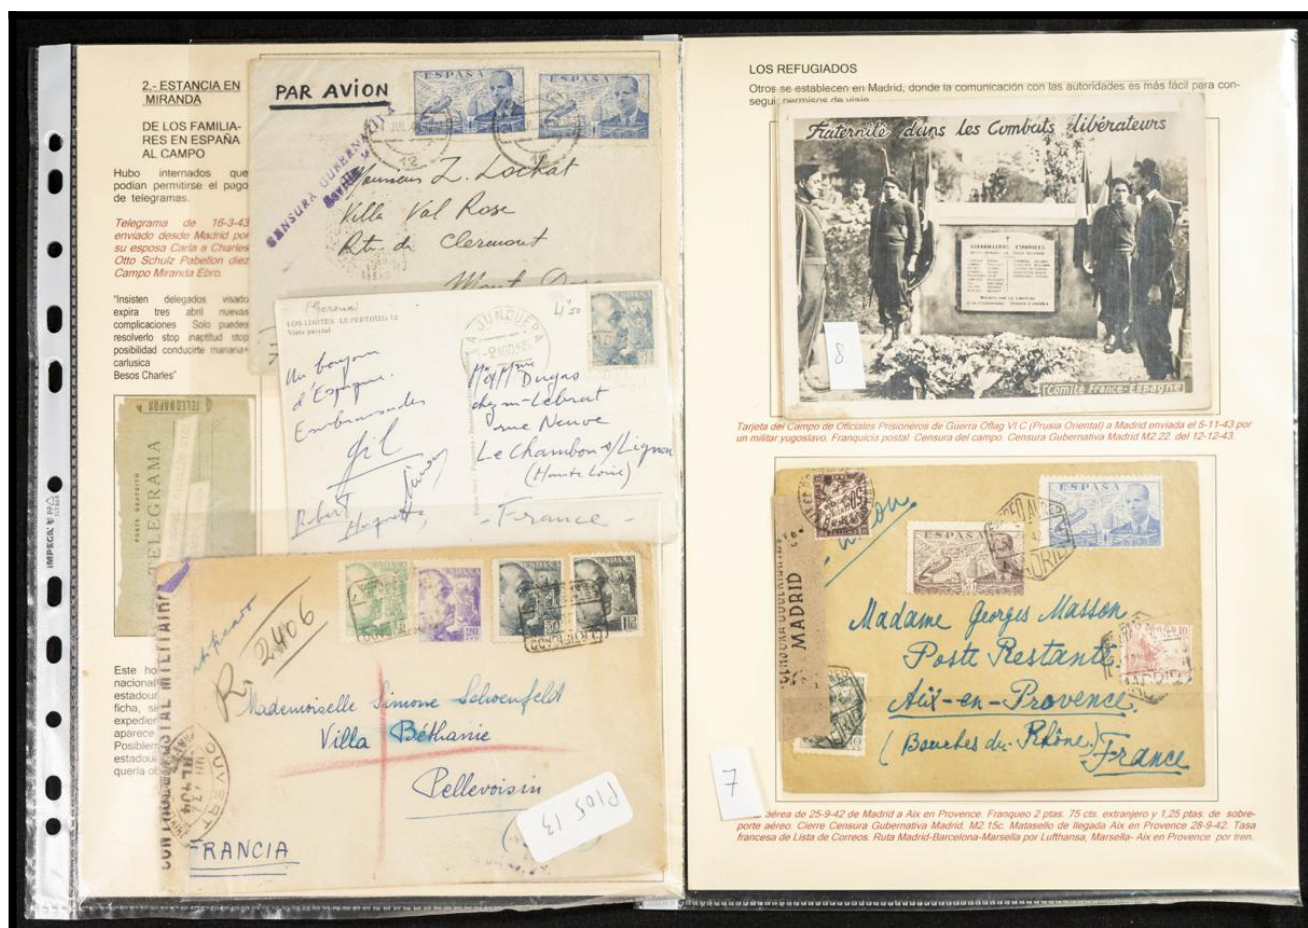 2.- ESTANCIA EN
MIRANDA
DE LOS FAMILIA-
RES EN ESPAÑA
AL CAMPO
Hubo internados que
podian permitirse el pago
de telegramas.
Telegrama de 16-3-43
enviado desde Madrid por
su esposa Carla a Charles
Otto Schulz Pabellon diez
Campo Miranda Ebro.
"Insisten delegados visado
expira tres abril nuevas
complicaciones Solo puedes
resolverlo stop inaptitud stop
posibilidad conducirte manana+
carlusica
Besos Charles"
TELEGRAFOS
PARTE GRATUITO
TELEGRAMA
Este ho
nacional
estadour
ficha, si
expedien
aparece
Posiblem
estadou
quería ob
IMPEGA
PAR AVION
ESPAÑA
ESPAÑA
CENSURA GUBERNATIVA
Sevilla
12
Monsieur Z. Lockat
Villa Val Rose
Rte de Clermont
Mont Dore
(Gerona)
LOS LIMITES LE PERTHUS
Vista parcial
LA JUNQUERA
Un bonjour
d'Espagne.
Embrassades
Robert
Huguette
Mr et Mme Dugas
chemin Lebrat
rue Neuve
Le Chambon s/Lignon
(Haute Loire)
- France -
R. 2406
CERTIFICADO
Mademoiselle Simone Schoenfeld
Villa Béthanie
Pellevoisin
FRANCIA
CONTROLE POSTAL MILITAIRE
OUVERT
P105 13
LOS REFUGIADOS
Otros se establecen en Madrid, donde la comunicación con las autoridades es más fácil para con-
seguir permisos de viaje.
Fraternité dans les Combats libérateurs
GUERRILLEROS ESPAÑOLES
8
Comité France-Espagne
Tarjeta del Campo de Oficiales Prisioneros de Guerra Oflag VI C (Prusia Oriental) a Madrid enviada el 5-11-43 por
un militar yugoslavo. Franquicia postal. Censura del campo. Censura Gubernativa Madrid M2.22. del 12-12-43.
ESPAÑA
ESPAÑA
CORREO AEREO
MADRID
CENSURA GUBERNATIVA
MADRID
Madame Georges Masson
Poste Restante
Aix-en-Provence
(Bouches du Rhône)
France
7
aérea de 25-9-42 de Madrid a Aix en Provence. Franqueo 2 ptas. 75 cts. extranjero y 1,25 ptas. de sobre-
porte aéreo. Cierre Censura Gubernativa Madrid. M2.15c. Matasello de llegada Aix en Provence 28-9-42. Tasa
francesa de Lista de Correos. Ruta Madrid-Barcelona-Marsella por Lufthansa, Marsella- Aix en Provence por tren.